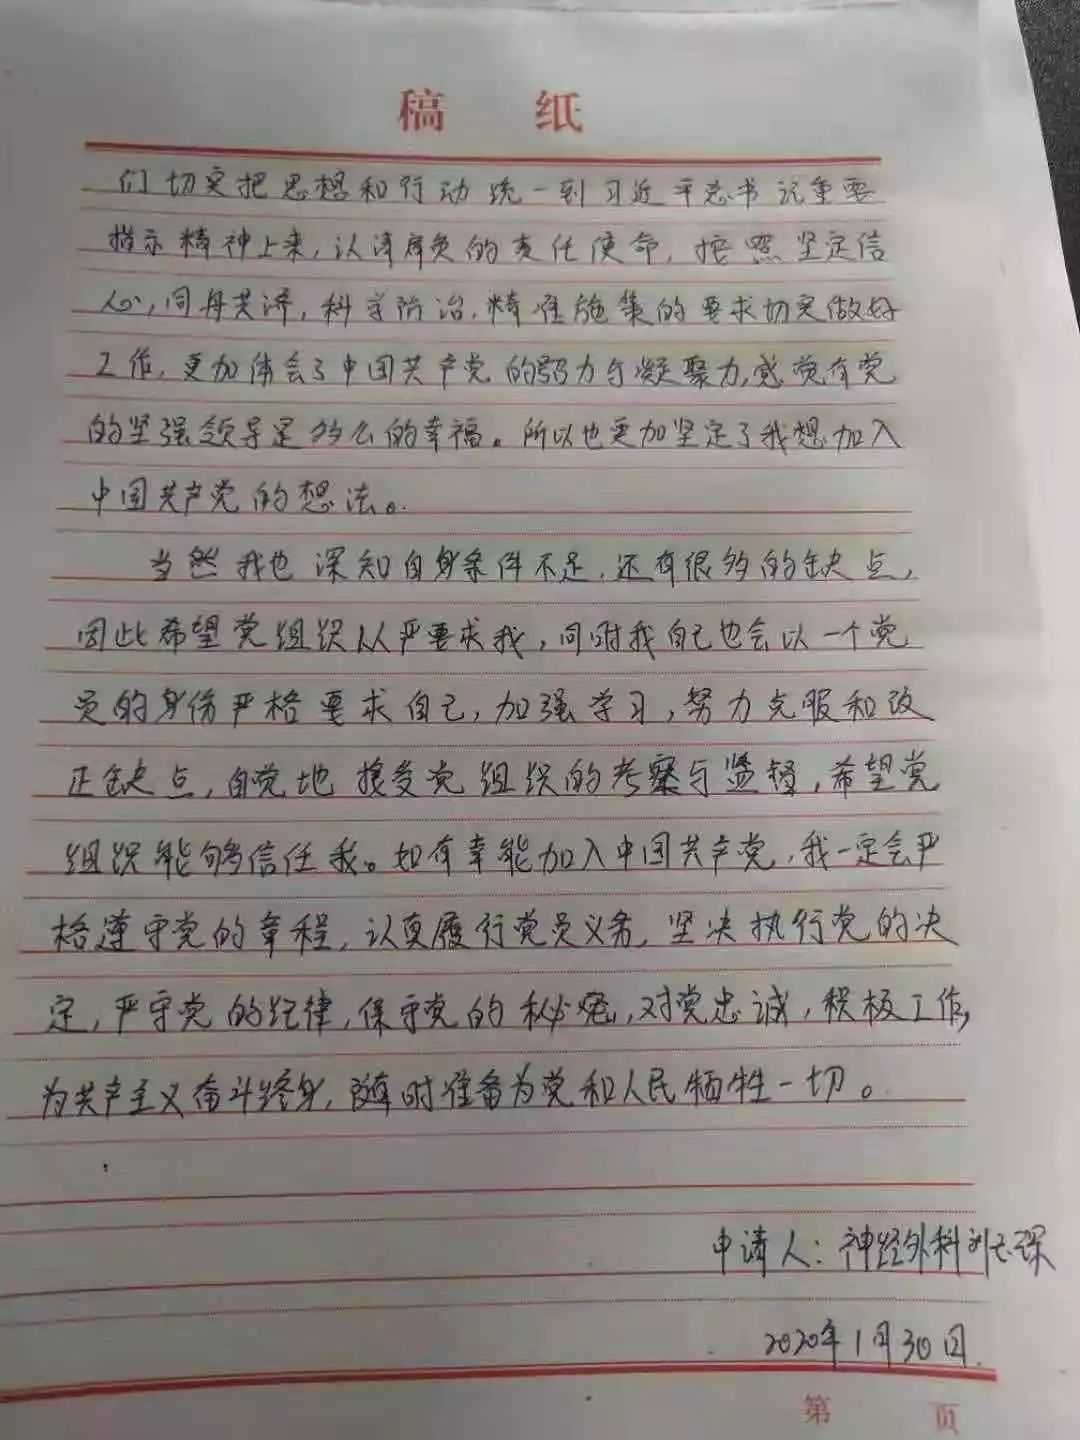 稿 纸
们切实把思想和行动统一到习近平总书记重要
指示精神上来,认清肩负的责任使命,按照坚定信
心,同舟共济,科学防治,精准施策的要求切实做好
工作,更加体会了中国共产党的努力与凝聚力,感觉有党
的坚强领导是多么的幸福。所以也更加坚定了我想加入
中国共产党的想法。
当然我也深知自身条件不足,还有很多的缺点,
因此希望党组织从严要求我,同时我自己也会以一个党
员的身份严格要求自己,加强学习,努力克服和改
正缺点,自觉地接受党组织的考察与监督,希望党
组织能够信任我。如有幸能加入中国共产党,我一定会严
格遵守党的章程,认真履行党员义务,坚决执行党的决
定,严守党的纪律,保守党的秘密,对党忠诚,积极工作,
为共产主义奋斗终身,随时准备为党和人民牺牲一切。
申请人:神经外科刘志深
2020年1月30日.
第 页